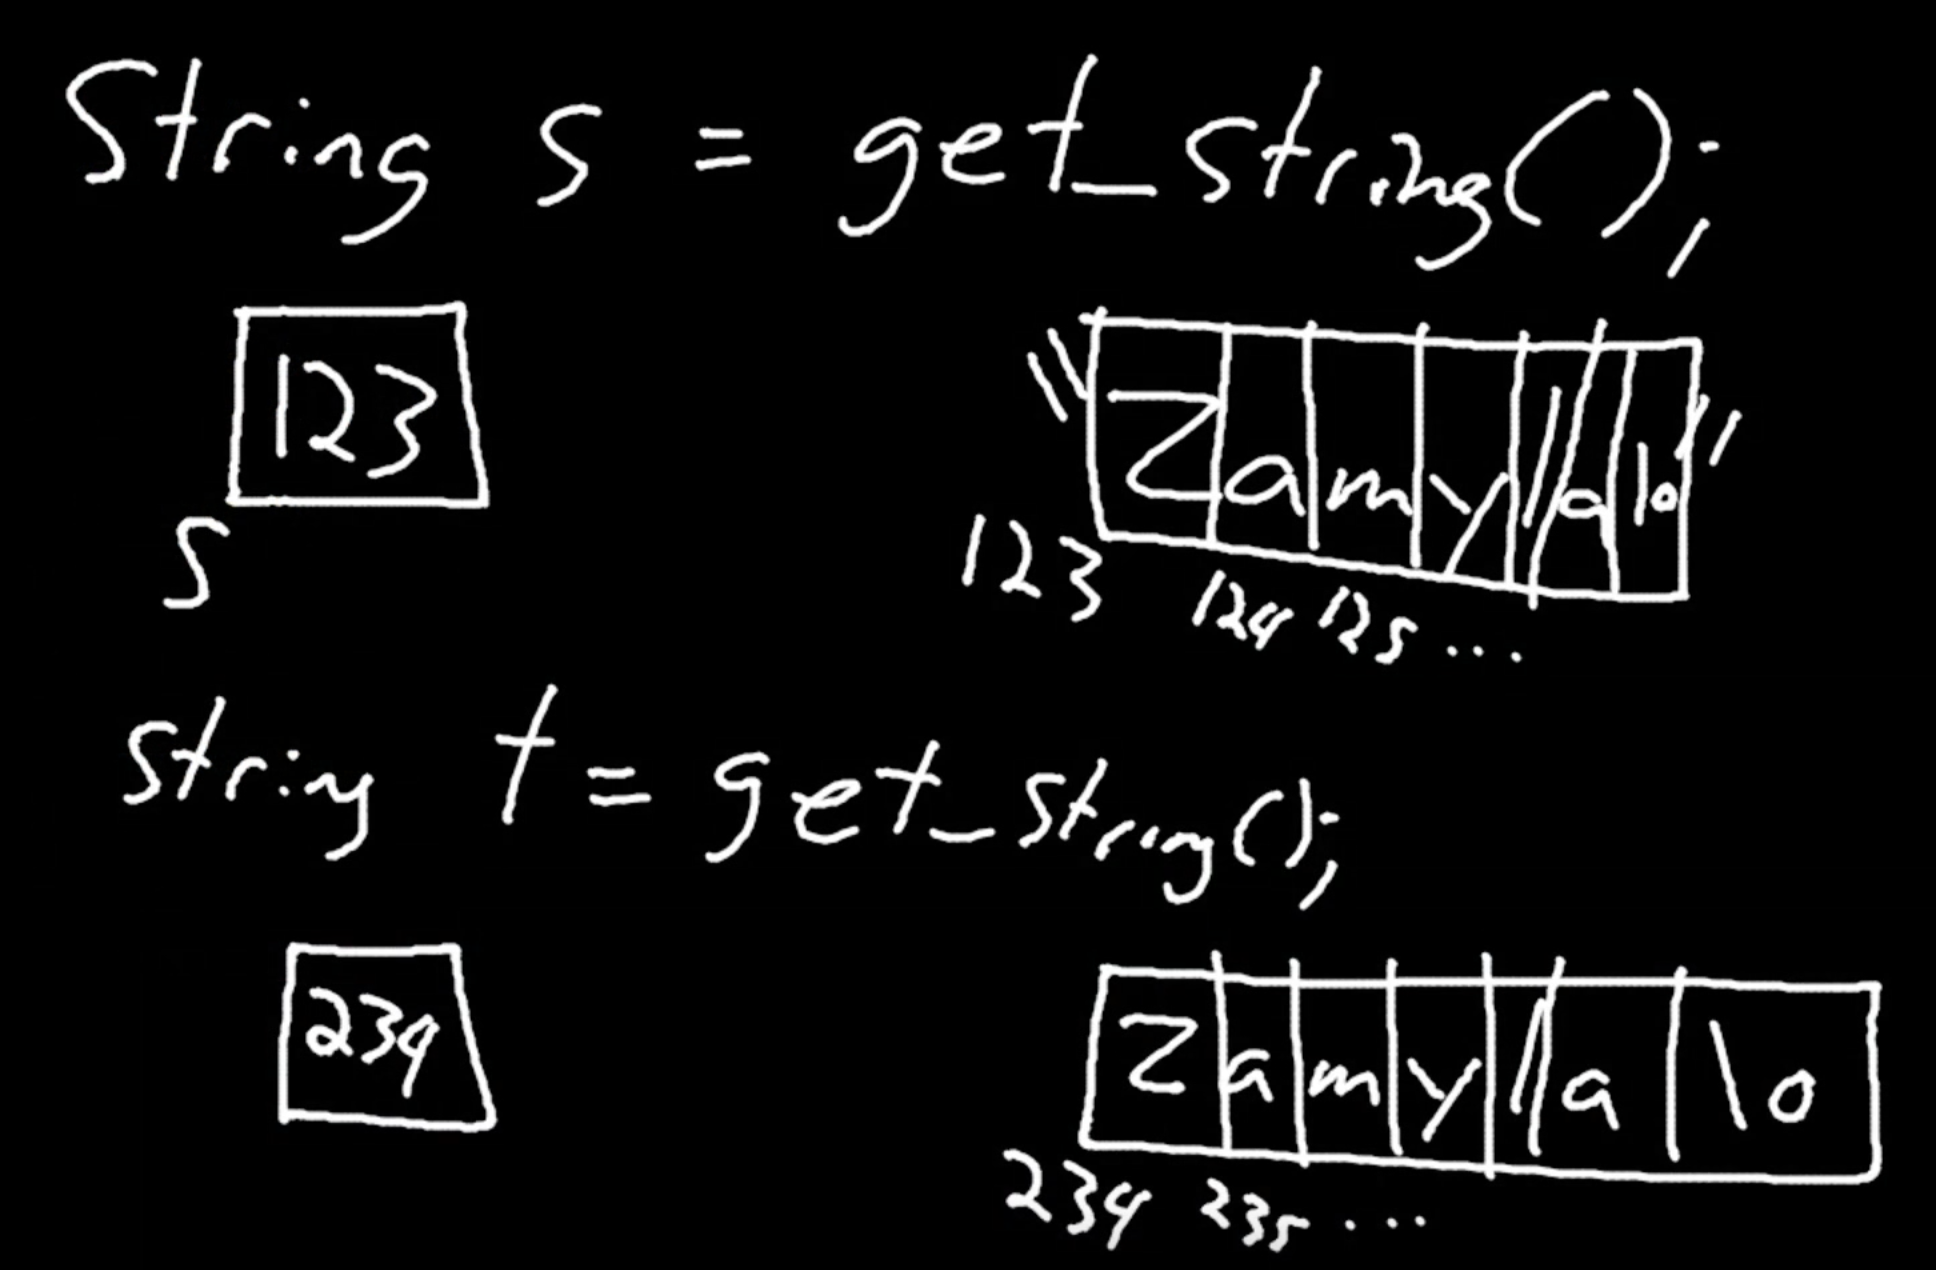 String s = get_string();
123
"Zamyla\0"
s
123 124 125 ...
string t = get_string();
234
Zamyla\0
234 235 ...